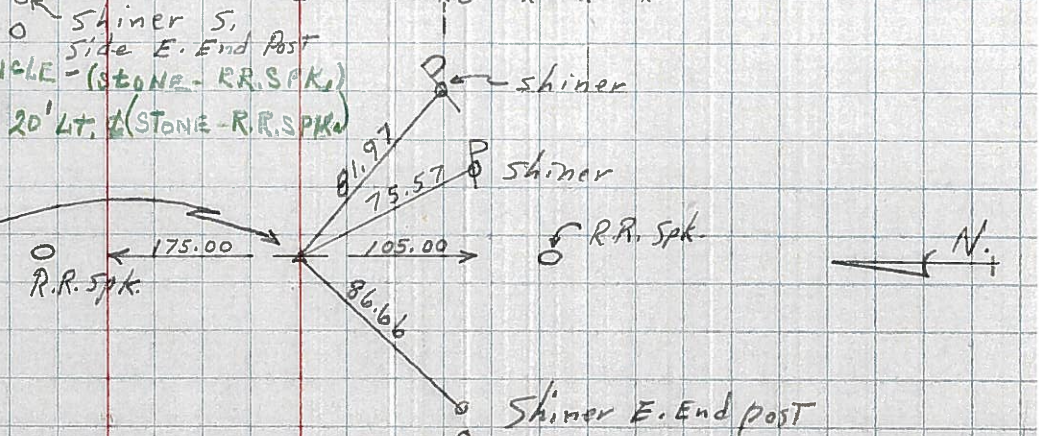 Shiner S.
Side E. End Post
(STONE - RR.SPK.)
20' LT. ℄(STONE-R.R.SPK.)
shiner
81.97
75.57
shiner
175.00
105.00
R.R. Spk.
N.
R.R. Spk.
86.66
Shiner E. End post